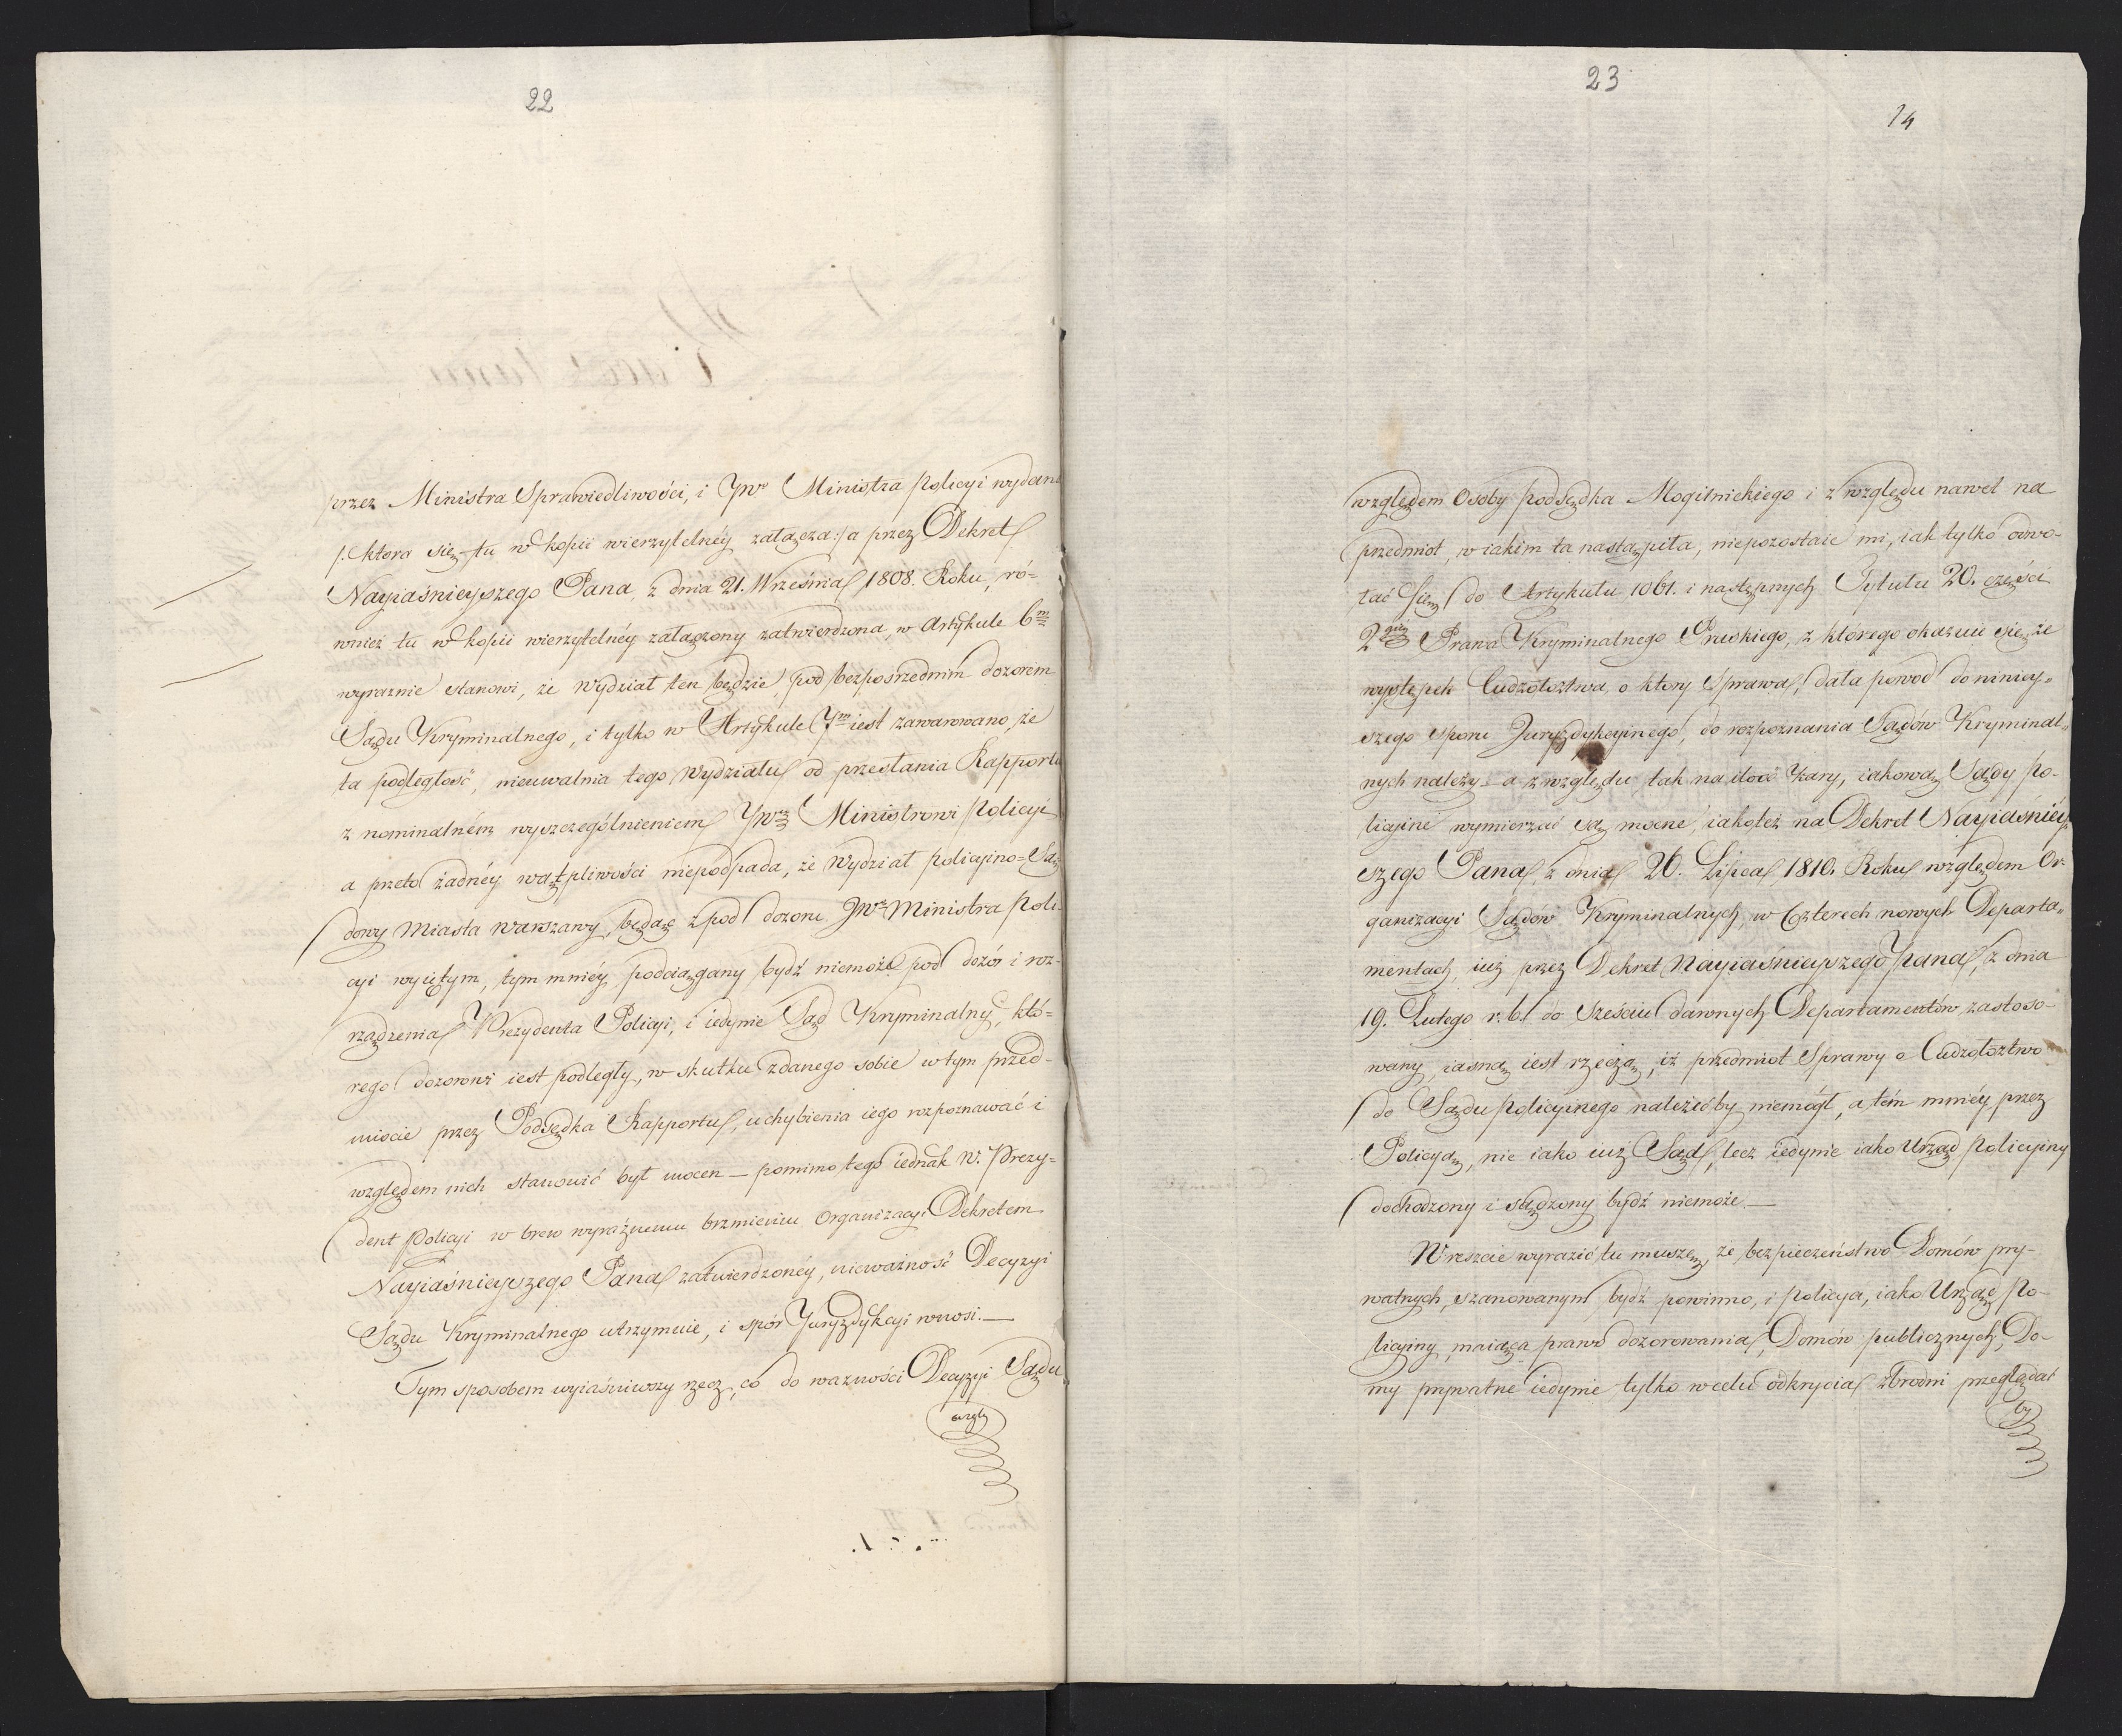 22
przez Ministra Sprawiedliwości, i JWo Ministra Policyi wydana
/: ktora się tu w kopii wierzytelnéy załącza :/ a przez Dekret
Nayiaśnieyszego Pana, z dnia 21. Września 1808. Roku, ró-
wnież tu w kopii wierzytelnéy załączony zatwierdzona, w Artykule 6m
wyraznie stanowi, że Wydział ten będzie pod bezpośrednim dozorem
Sądu Kryminalnego, i tylko w Artykule 7m iest zawarowano, że
ta podległość, nieuwalnia tego Wydziału od przesłania Rapportu
z nominalném wyszczególnieniem JWmu Ministrowi Policyi
a przeto żadnéy wątpliwości niepodpada, że Wydział Policyino-Są-
dowy Miasta Warszawy, będąc z pod dozoru JWo Ministra Poli-
cyi wyiętym, tym mniéy podciągany bydź niemoże pod dozór i roz-
rządzenia Prezydenta Policyi, i iedynie Sąd Kryminalny, któ-
rego dozorowi iest podległy, w skutku zdanego sobie w tym przed-
miocie przez Podsędka Rapportu, uchybienia iego rozpoznawać i
względem nich stanowić był mocen — pomimo tego iednak W. Prezy-
dent Policyi w brew wyraźnemu brzmieniu Organizacyi Dekretem
Nayiaśnieyszego Pana zatwierdzonéy, nieważność Decyzyi
Sądu Kryminalnego utrzymuie, i spór Juryzdykcyi wnosi. —
Tym sposobem wyiaśniwszy rzecz, co do ważności Decyzyi Sądu
wzglę
23
14
względem Osoby Podsędka Mogilnickiego i z względu nawet na
przedmiot, w iakim ta nastąpiła, niepozostaie mi, iak tylko odwo-
łać się do Artykułu 1061. i następnych Tytułu 20. części
2giéy Prawa Kryminalnego Pruskiego, z którego okazuie się, że
występek Cudzołoztwa, o ktory Sprawa, dała powod do niniey-
szego sporu Juryzdykcyinego, do rozpoznania Sądów Kryminal-
nych należy a z względu tak na ilość kary, iakową Sądy Po-
licyine wymierzać są mocne, iakoteż na Dekret Nayiaśniéy-
szego Pana, z dnia 26. Lipca 1810. Roku względem Or-
ganizacyi Sądów Kryminalnych, w Czterech nowych Departa-
mentach, iuż przez Dekret Nayiaśnieyszego Pana, z dnia
19. Lutego r. b. do Sześciu dawnych Departamentów zastoso-
wany, iasną iest rzeczą, iż przedmiot Sprawy o Cudzołoztwo
do Sądu Policyinego należéć by niemógł, a tém mniéy przez
Policyą, nie iako iuż Sąd, lecz iedynie iako Urząd Policyiny
dochodzony i sądzony bydź niemoże. —
Wreszcie wyrazić tu muszę, że bezpieczeństwo Domów pry-
watnych, szanowanym bydź powinno, i Policya, iako Urząd Po-
licyiny, maiąca prawo dozorowania, Domów publicznych, Do-
my prywatne iedynie tylko w celu odkrycia zbrodni przeglądać
by